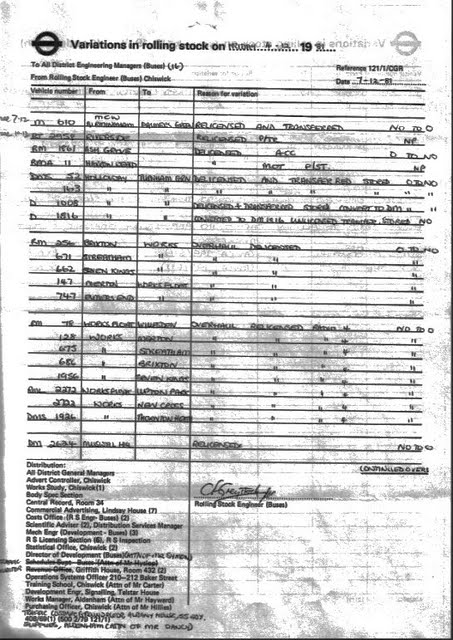 Variations in rolling stock on MONDAY 7.12. 19 81.
To All District Engineering Managers (Buses) (16)
Reference 121/1/CGR
From Rolling Stock Engineer (Buses) Chiswick
Date 7-12-81
Vehicle number From To Reason for variation
M 610 MCW RELICENSED AND TRANSFERRED NO TO O
RIVERSIDE RELICENSED NP
RM 1801 ASH GROVE DELICENSED ACC O TO NO
RMA 11 " NP
DMS 52 HOLLOWAY TURNHAM GRN DELICENSED AND TRANSFERRED STORED O TO NO
163 " " " " " "
D 1008 " " DELICENSED & TRANSFERRED STORED CONVERT TO DM " "
D 1816 " " CONVERTED TO DM 1816 UNLICENSED TRANSFER STORED NO
RM 256 BRIXTON WORKS OVERHAUL DELICENSED O TO NO
671 STREATHAM " " " "
662 SEVEN KINGS " " " "
147 MERTON WORKS FLOAT " " "
747 " " " "
RM 78 WORKS FLOAT WILLESDEN OVERHAUL RELICENSED RADIO 4 NO TO O
128 WORKS MERTON " " " 4 "
675 " STREATHAM " " " 4 "
686 " BRIXTON " " " 4 "
1956 " SEVEN KINGS " " " 4 "
RML 2272 WORKS FLOAT UPTON PARK " " " 4 "
2722 WORKS NEW CROSS " " " 4 "
DMS 1926 " THORNTON HEATH " " " 4 "
DM 2634 MUSWELL HILL RELICENSED NO TO O
(CONTINUED OVER)
Distribution:
All District General Managers
Advert Controller, Chiswick
Works Study, Chiswick(1)
Body Spec Section
Central Record, Room 34
Rolling Stock Engineer (Buses)
Commercial Advertising, Lindsay House (7)
Costs Office (R S Engr- Buses) (2)
Scientific Adviser (2), Distribution Services Manager
Mech Engr (Development - Buses) (3)
R S Licensing Section (6), R S Inspection
Statistical Office, Chiswick (2)
Director of Development (Buses)
Schedules Dept - Buses (Attn of Mr Hyslop)
Revenue Office, Griffith House, Room 432 (2)
Operations Systems Officer 210-212 Baker Street
Training School, Chiswick (Attn of Mr Carter)
Development Engr, Signalling, Telstar House
Works Manager, Aldenham (Attn of Mr Hayward)
Purchasing Officer, Chiswick (Attn of Mr Hillier)
ALBANY HOUSE, 55
408/69(1) (500 2/79 121/1)
SUPPLIES, ALDENHAM (ATTN OF MR DANCY)